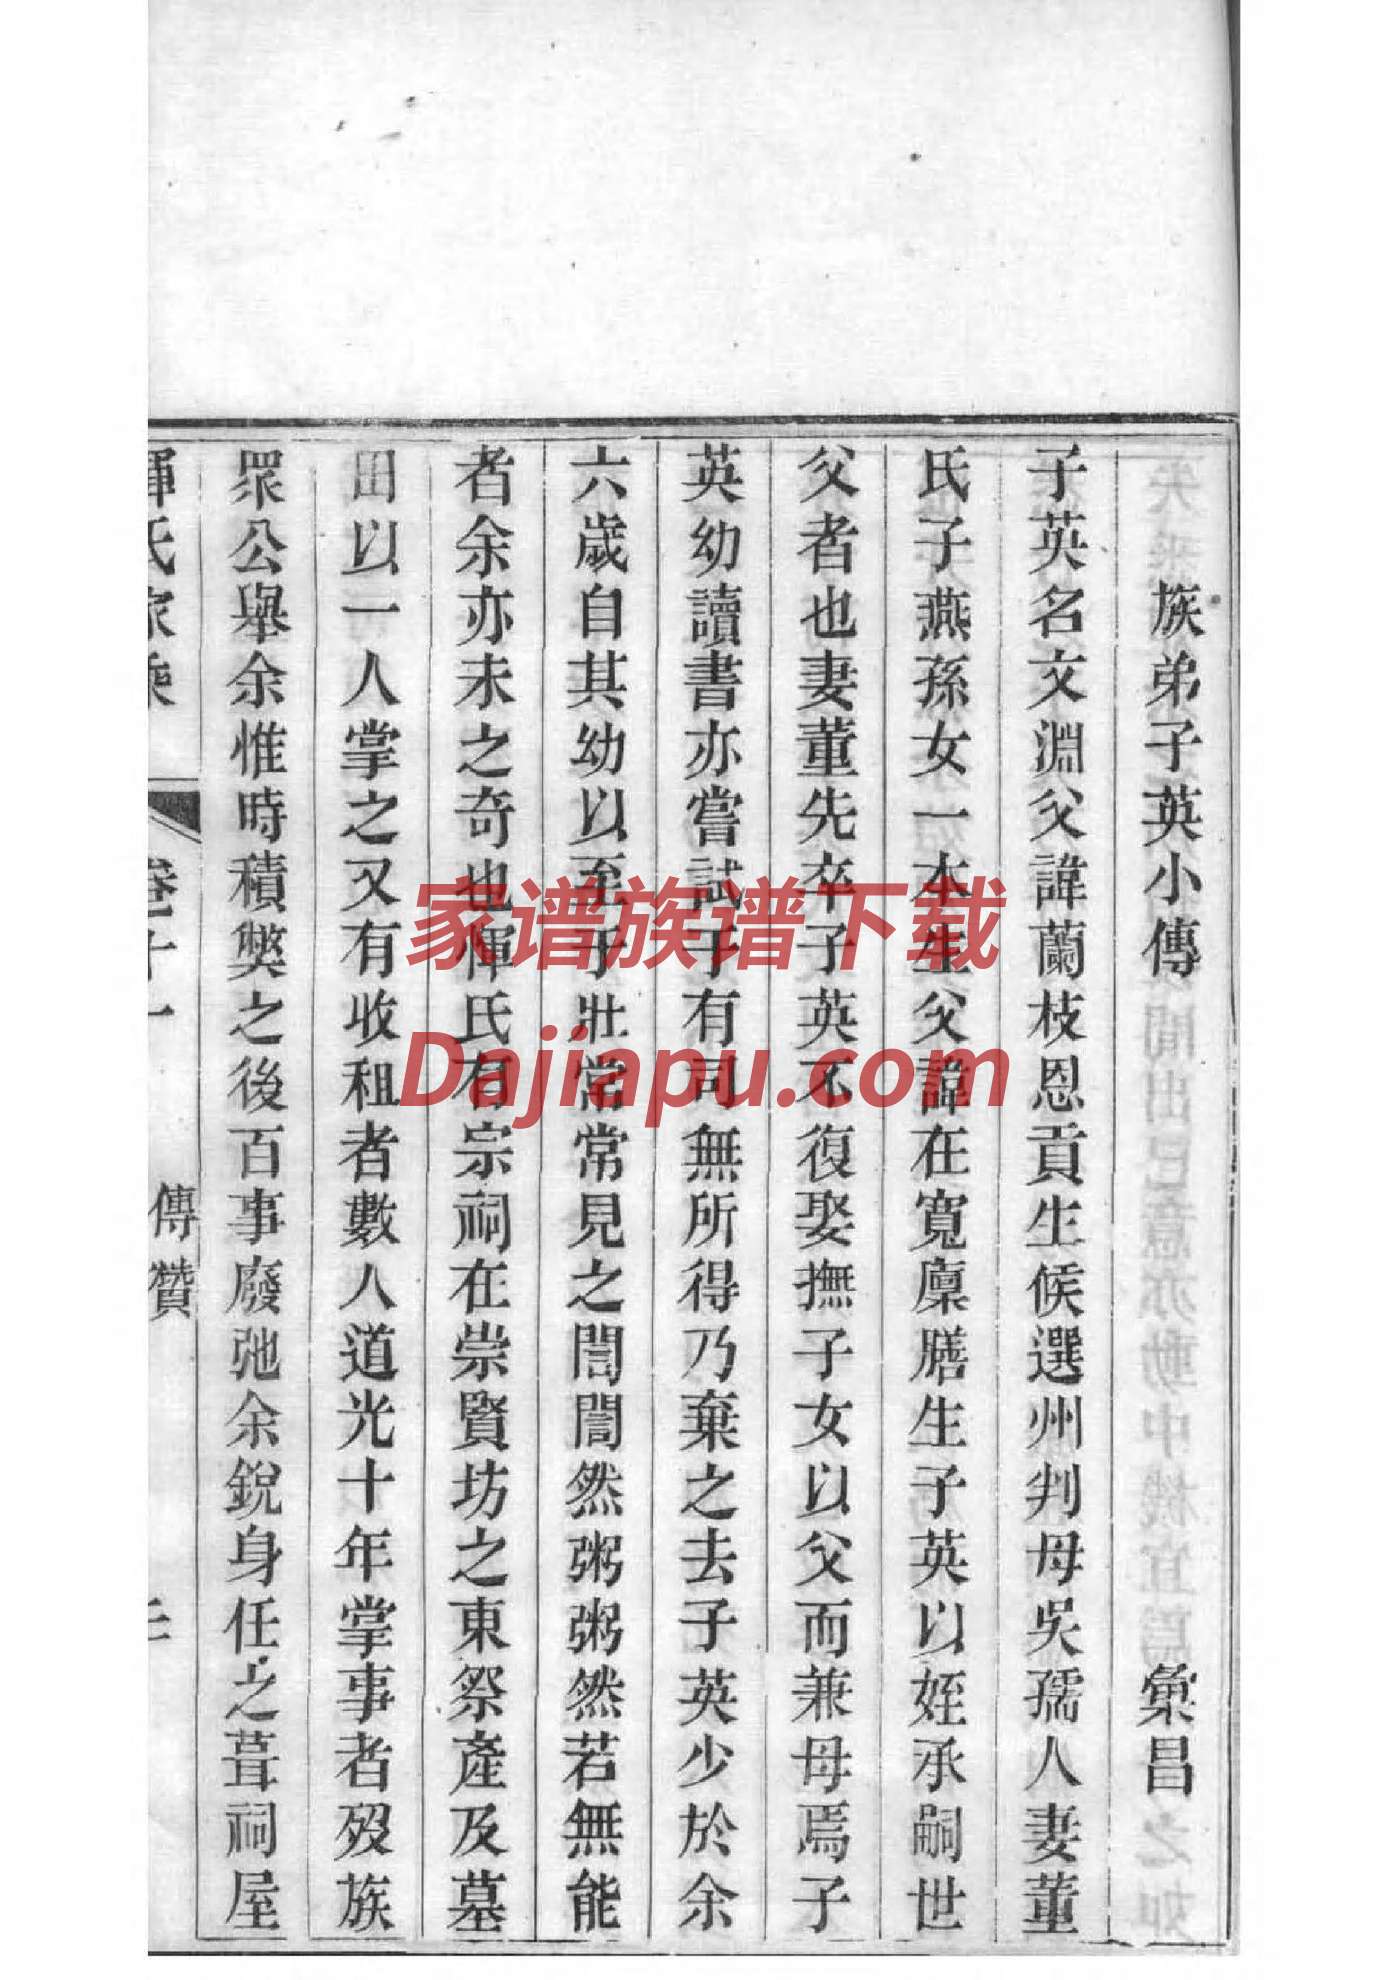 族弟子英小傳 彙昌
子英名文淵父諱蘭枝恩貢生候選州判母吳孺人妻董
氏子燕孫女一本生父諱在寬廩膳生子英以姪承嗣世
父者也妻董先卒子英不復娶撫子女以父而兼母焉子
英幼讀書亦嘗試于有司無所得乃棄之去子英少於余
六歲自其幼以至于壯常常見之誾誾然粥粥然若無能
者余亦未之奇也惲氏有宗祠在崇賢坊之東祭產及墓
田以一人掌之又有收租者數人道光十年掌事者歿族
眾公舉余惟時積獘之後百事廢弛余銳身任之葺祠屋
惲氏家乘 卷十一 傳贊
家谱族谱下载
Dajiapu.com